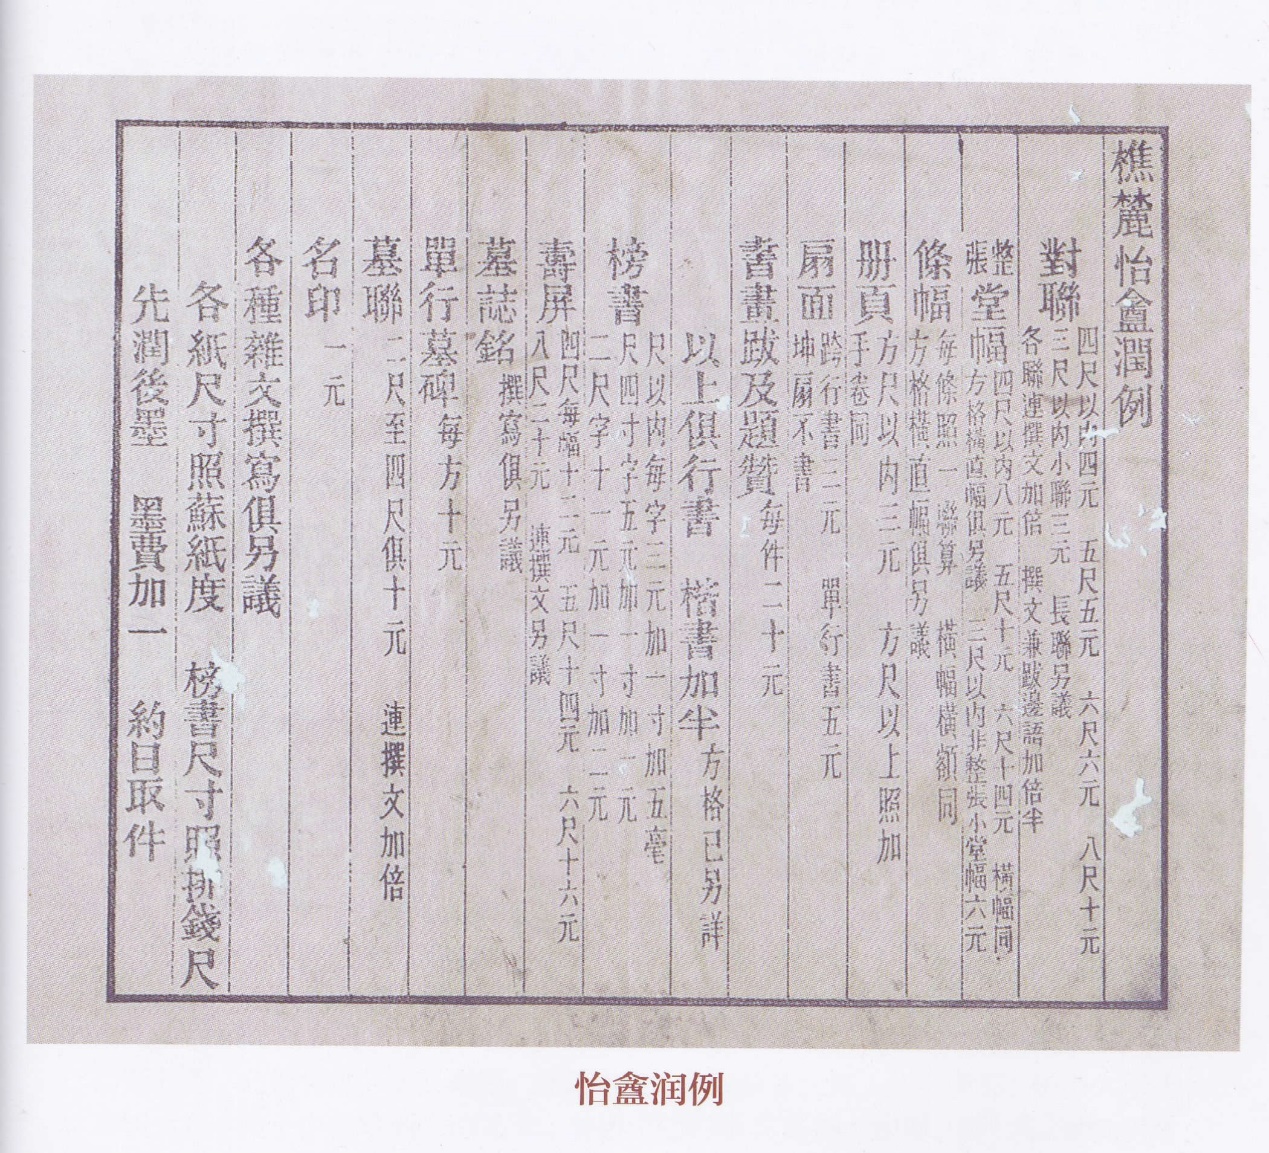 樵麓怡盦潤例
對聯
四尺以内四元 五尺五元 六尺六元 八尺十元
三尺以内小聯三元 長聯另議
各聯連撰文加倍 撰文兼跋邊語加倍半
整張堂幅
四尺以内八元 五尺十元 六尺十四元 橫幅同
方格橫直幅俱另議 三尺以内非整張小堂幅六元
條幅
每條照一聯算 橫幅橫額同
方格橫直幅俱另議
册頁
方尺以内三元 方尺以上照加
手卷同
扇面
跨行書二元 單行書五元
坤扇不書
書畫跋及題贊 每件二十元
以上俱行書 楷書加半 方格已另詳
榜書
尺以内每字三元加一寸加五毫
尺四寸字五元加一寸加一元
二尺字十一元加一寸加二元
壽屏
四尺每幅十二元 五尺十四元 六尺十六元
八尺二十元 連撰文另議
墓誌銘 撰寫俱另議
單行墓碑 每方十元
墓聯 二尺至四尺俱十元 連撰文加倍
名印 一元
各種雜文撰寫俱另議
各紙尺寸照蘇紙度 榜書尺寸照排錢尺
先潤後墨 墨費加一 約日取件
怡盦润例